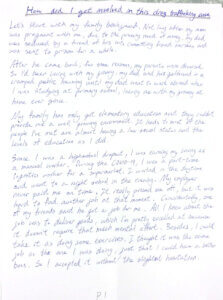 How did I get involved in this drug trafficking case
Let's start with my family background. Not long after my mom
was pregnant with me, due to the young mind of my dad, he
was seduced by a friend of his into committing fraud earlier and
was sent to prison for a while.
After he came back, for some reason, my parents were divorced
So I'd been living with my granny, my dad and his girlfriend in a
cramped public housing unit. My dad went to work abroad when
I was studying at primary school, leaving me with my granny at
home ever since.
My family has only got elementary education and they right
provide not a well learning environment. It leads to most of the
people I've met are almost having a low social status and the
levels of education as I did.
Since I was a high school dropout, I was earning my living as
a manual worker. During the COVID-19, I was a part-time
logistics worker for a supermarket. I worked in the daytime
and went to a night school in the evening. My employer
never paid me on time. It really pissed me off, but it was
hard to find another job at that moment. Coincidentally, one
of my friends said he got a job for me. All I knew about the
job was to deliver goods, which I'm pretty excited at because
it doesn't require that much mental effort. Besides, I could
take it as doing some exercises. I thought it was the same
job as the one I was doing, just that I could have a better
boss. So I accepted it without the slightest hesitation
P1